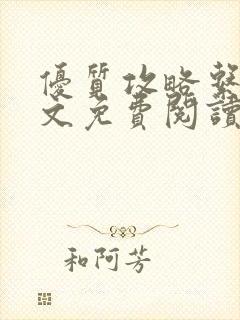 優質攻略繫
文免費閱讀
和阿芳